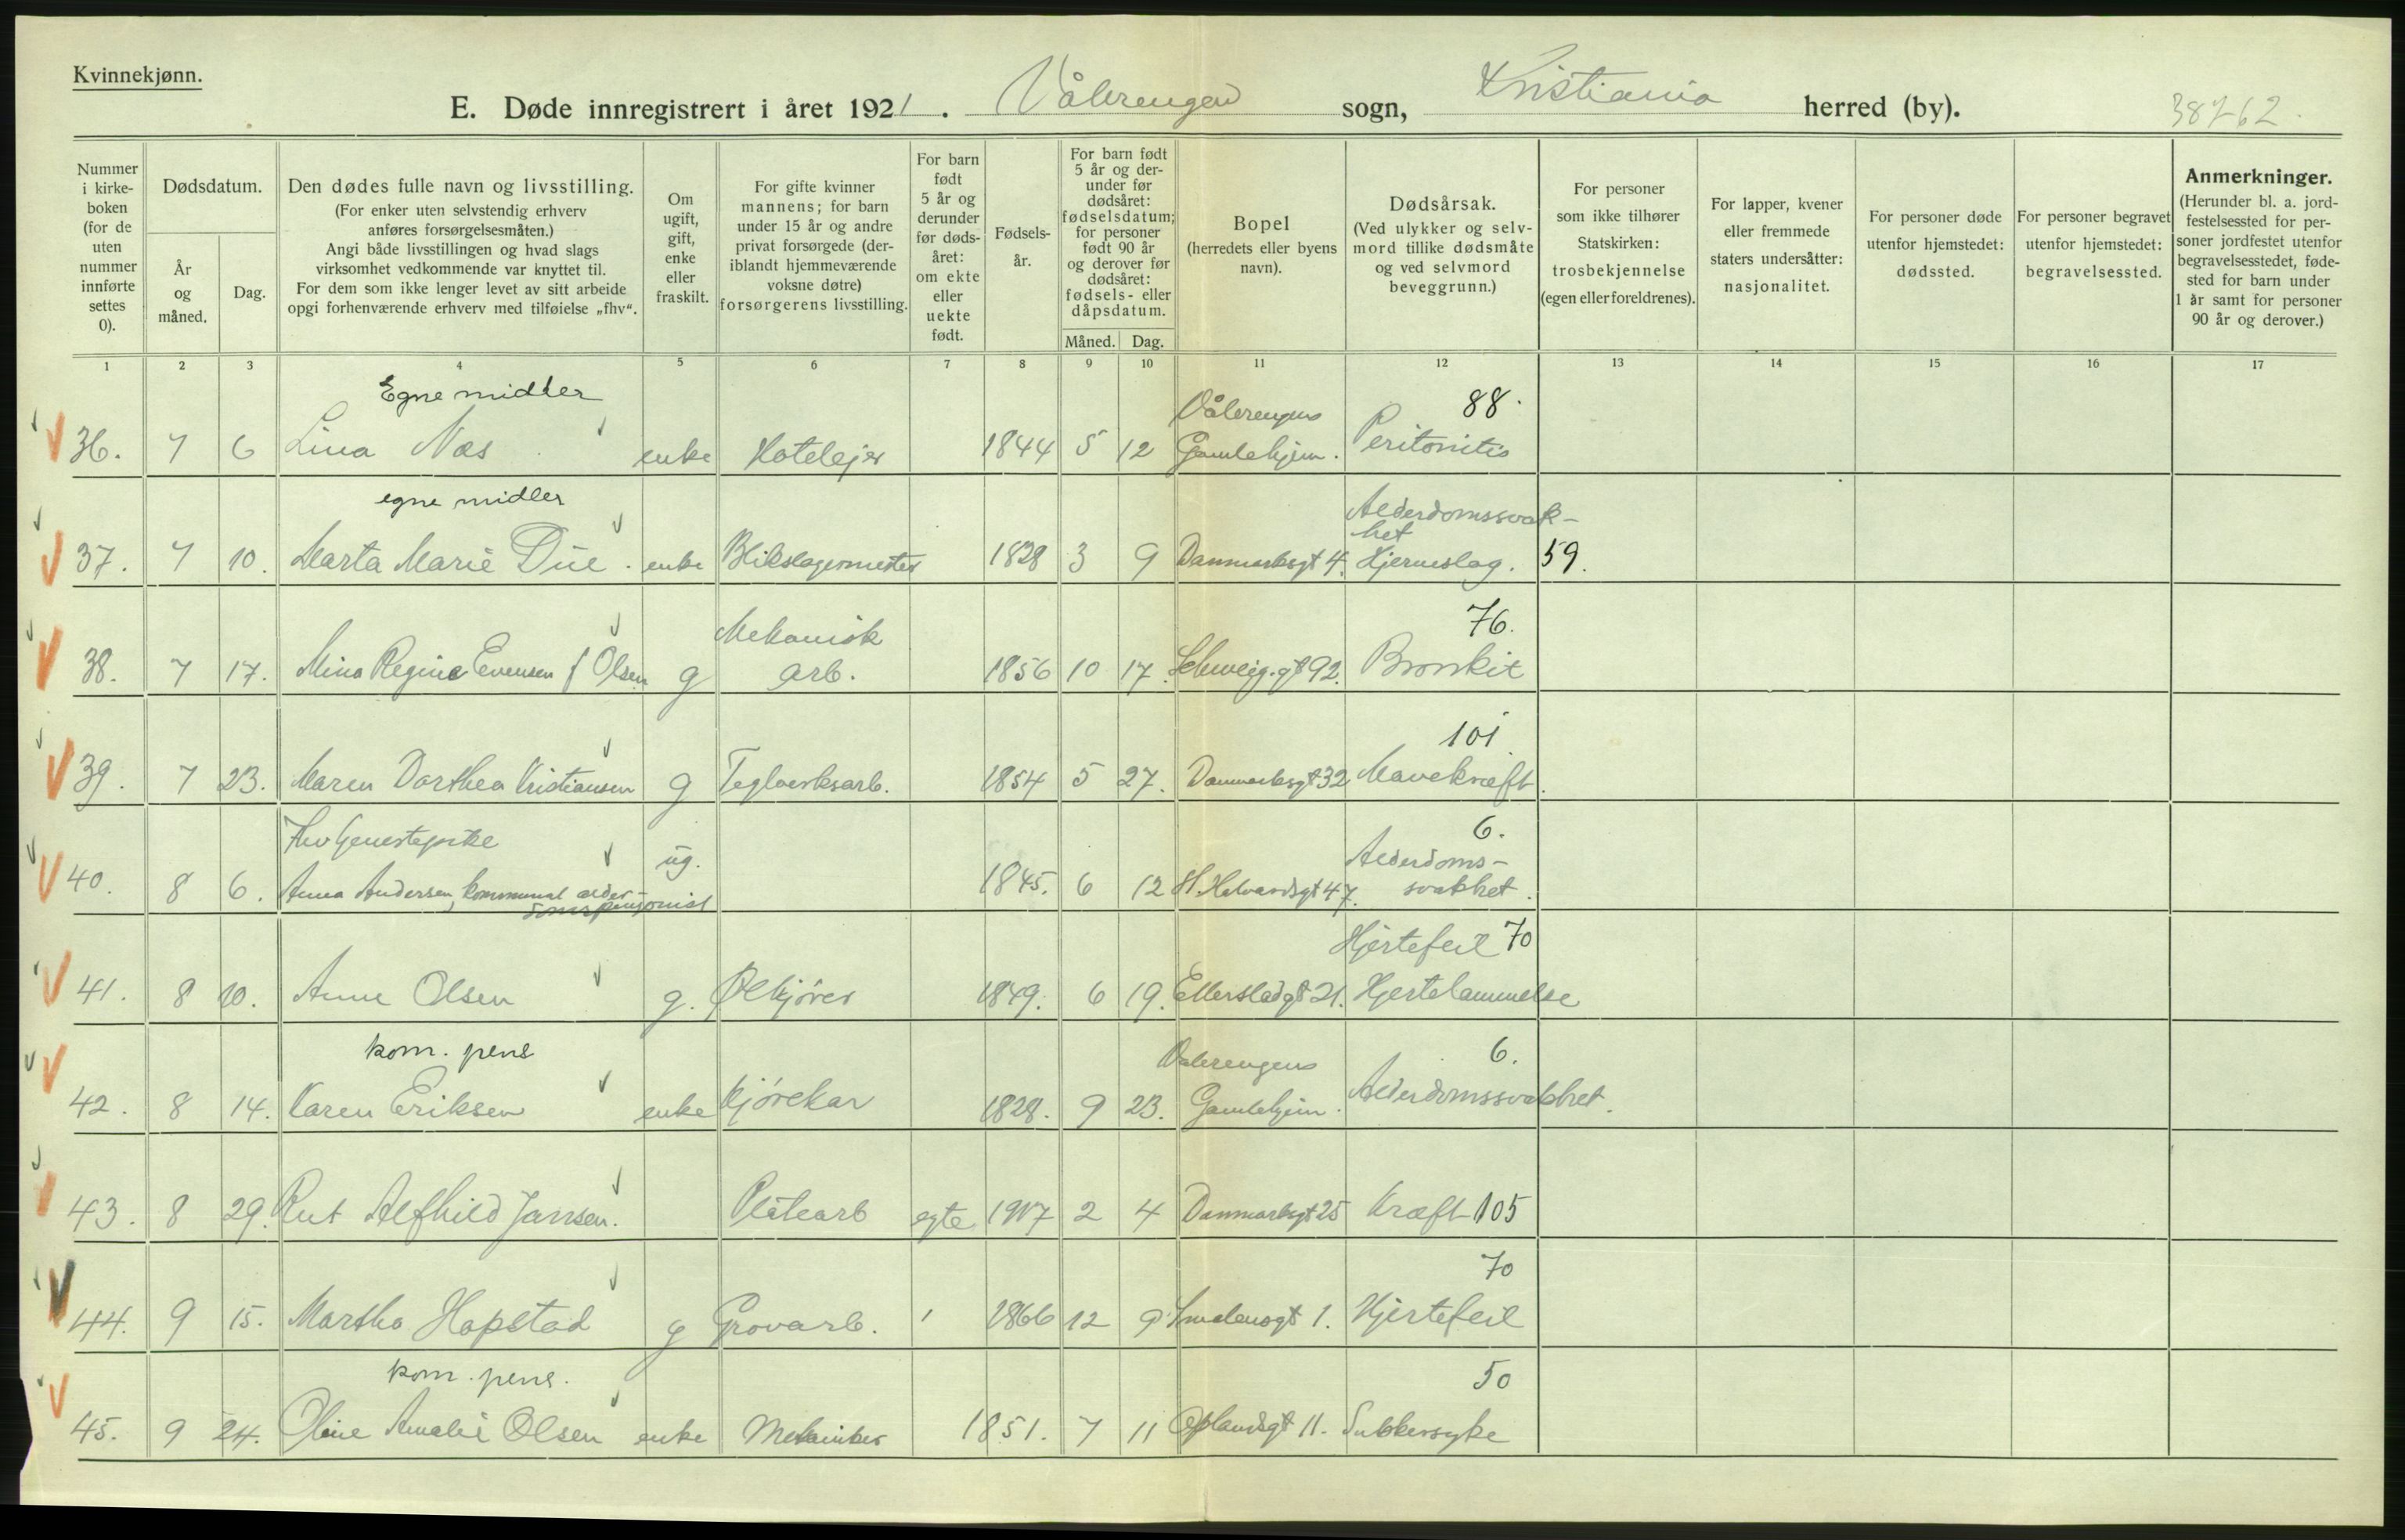 Kvinnekjønn.
E. Døde innregistrert i året 1921. Vålerengen sogn, Kristiania herred (by). 38762.
Nummer i kirkeboken (for de uten nummer innførte settes 0).
Dødsdatum.
År og måned.
Dag.
Den dødes fulle navn og livsstilling.
(For enker uten selvstendig erhverv anføres forsørgelsesmåten.)
Angi både livsstillingen og hvad slags virksomhet vedkommende var knyttet til.
For dem som ikke lenger levet av sitt arbeide opgi forhenværende erhverv med tilføielse „fhv“.
Om ugift, gift, enke eller fraskilt.
For gifte kvinner mannens; for barn under 15 år og andre privat forsørgede (deriblandt hjemmeværende voksne døtre) forsørgerens livsstilling.
For barn født 5 år og derunder før dødsåret: om ekte eller uekte født.
Fødselsår.
For barn født 5 år og derunder før dødsåret: fødselsdatum; for personer født 90 år og derover før dødsåret: fødsels- eller dåpsdatum.
Måned. Dag.
Bopel (herredets eller byens navn).
Dødsårsak. (Ved ulykker og selvmord tillike dødsmåte og ved selvmord beveggrunn.)
For personer som ikke tilhører Statskirken: trosbekjennelse (egen eller foreldrenes).
For lapper, kvener eller fremmede staters undersåtter: nasjonalitet.
For personer døde utenfor hjemstedet: dødssted.
For personer begravet utenfor hjemstedet: begravelsessted.
Anmerkninger. (Herunder bl. a. jordfestelsessted for personer jordfestet utenfor begravelsesstedet, fødested for barn under 1 år samt for personer 90 år og derover.)
1 2 3 4 5 6 7 8 9 10 11 12 13 14 15 16 17
Egne midler Vålerengens 88.
36. 7 6 Lina Næs enke Hotelejer 1844 5 12 Gamlehjem. Peritonitis
egne midler Alderdomssvakhet
37. 7 10. Marta Marie Due. enke Blikslagermester 1828 3 9 Danmarksgt 4. Hjerneslag. 59.
Mekanisk 76.
38. 7 17. Mina Regine Evensen f Olsen g arb. 1856 10 17. Schweig.gt 92. Bronkit
101
39. 7 23. Maren Dorthea Kristiansen g Teglverksarb. 1854 5 27. Danmarksgt 32 Mavekræft.
Fhv tjenestepike ug. 6. Alderdoms-
40. 8 6. Anna Andersen, kommunal alderdomspensjonist 1845. 6 12 St. Halvardsgt 47. svakhet.
Hjertefeil 70
41. 8 10. Anne Olsen g. Ølkjører 1849. 6 19. Ellerslidgt 21. Hjertelammelse
kom. pens Valerengens 6.
42. 8 14. Karen Eriksen enke Kjørekar 1828. 9 23. Gamlehjem. Alderdomssvakhet.
43. 8 29. Rut Alfhild Jansen. Platearb egte 1917 2 4 Danmarksgt 25 Kræft 105
70
44. 9 15. Martha Hapstad g Grovarb. 1866 12 9 Smalensgt 1. Hjertefeil
kom. pens. 50
45. 9 24. Oline Amalie Olsen enke Mekaniker 1851. 7 11 Oplandsgt 11. Sukkersyke